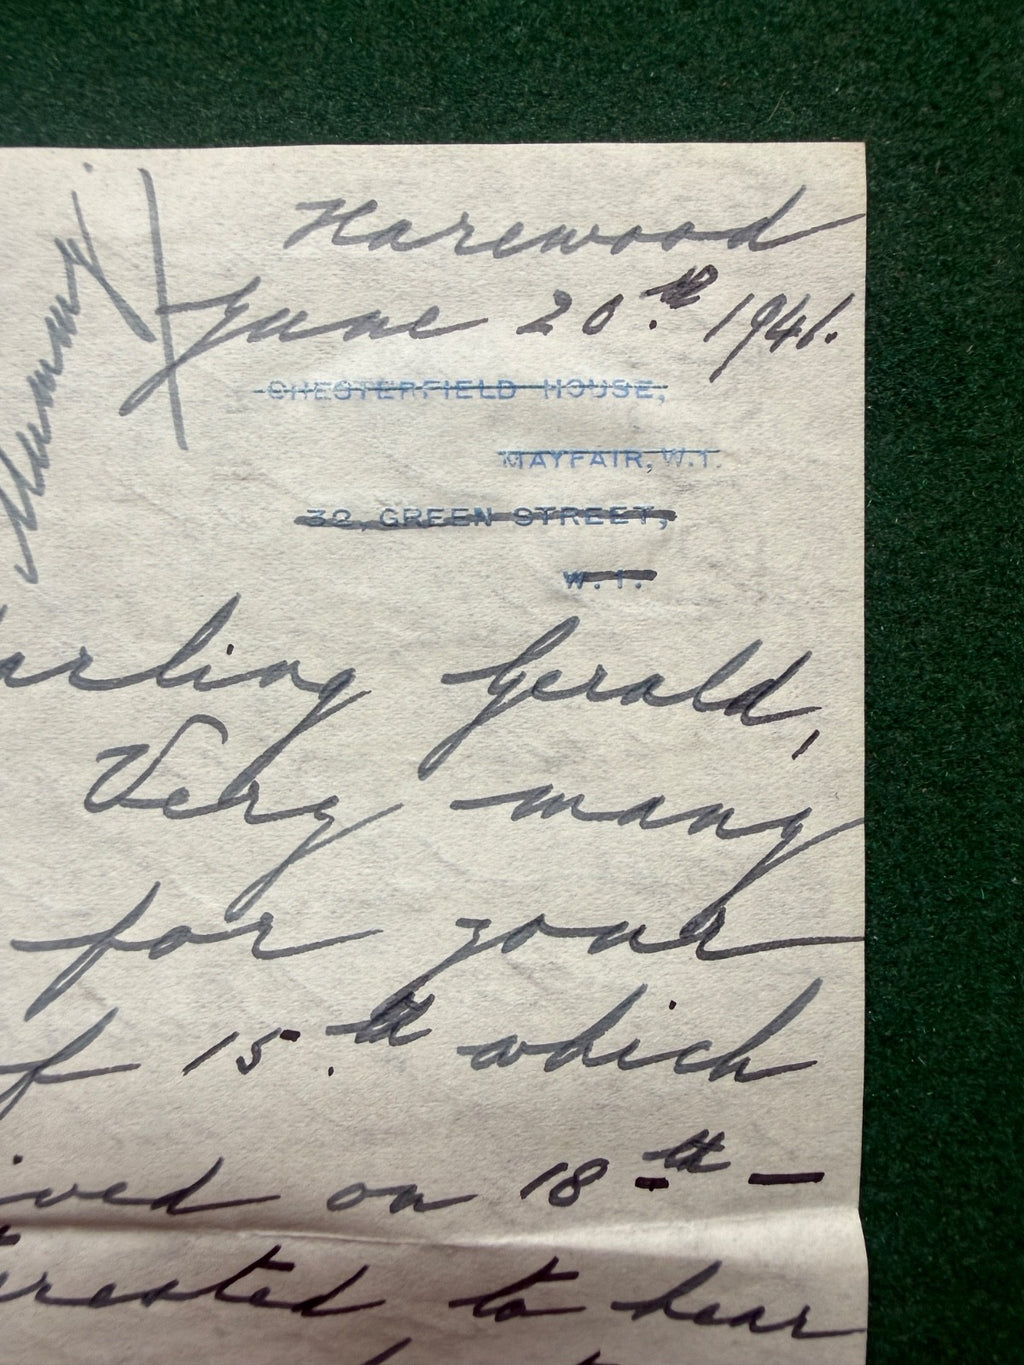 Mummy.
Harewood
June 20.th 1941.
CHESTERFIELD HOUSE,
MAYFAIR, W.1.
32, GREEN STREET,
W.1.
arling Gerald,
Very many
for your
f 15.th which
ived on 18th —
terested to hear